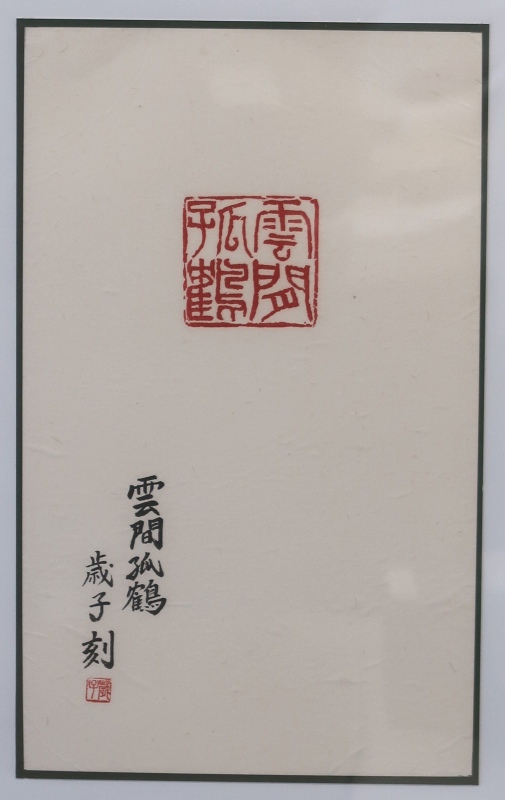 雲間
孤鶴
雲間孤鶴
歳子刻